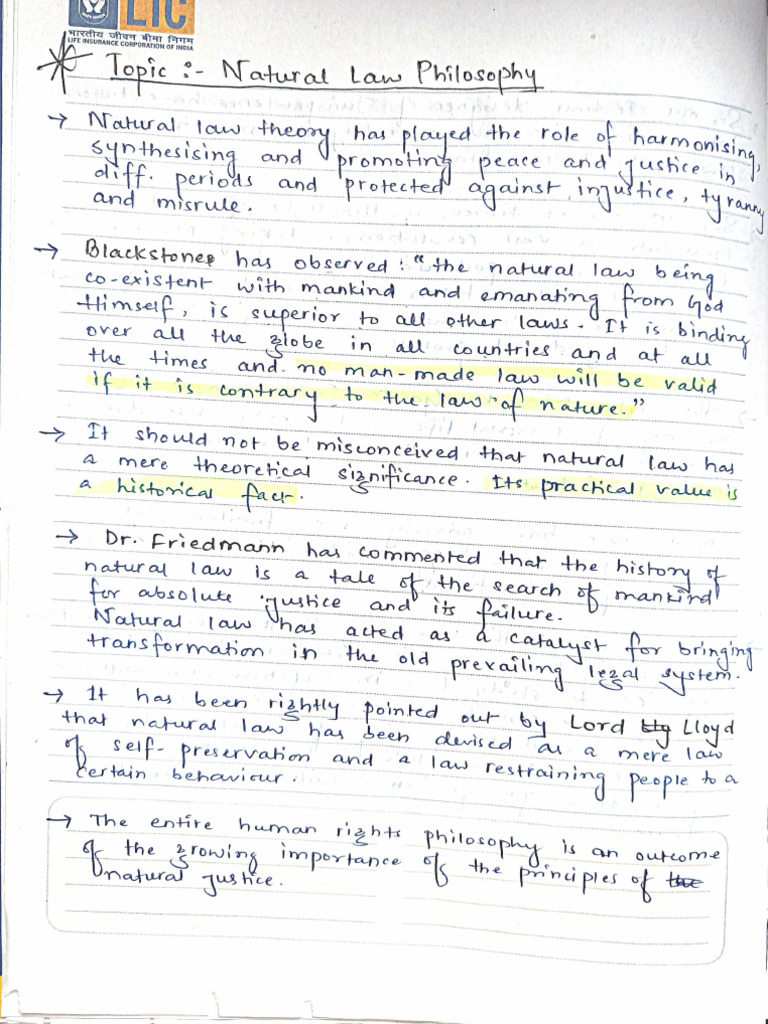 LIC
भारतीय जीवन बीमा निगम
LIFE INSURANCE CORPORATION OF INDIA
Topic :- Natural Law Philosophy
→ Natural law theory has played the role of harmonising,
synthesising and promoting peace and justice in
diff. periods and protected against injustice, tyranny
and misrule.
→ Blackstone has observed : "the natural law being
co-existent with mankind and emanating from God
Himself, is superior to all other laws. It is binding
over all the globe in all countries and at all
the times and no man-made law will be valid
if it is contrary to the law of nature."
→ It should not be misconceived that natural law has
a mere theoretical significance. Its practical value is
a historical fact.
→ Dr. Friedmann has commented that the history of
natural law is a tale of the search of mankind
for absolute justice and its failure.
Natural law has acted as a catalyst for bringing
transformation in the old prevailing legal system.
→ It has been rightly pointed out by Lord Lloyd
that natural law has been devised as a mere law
of self-preservation and a law restraining people to a
certain behaviour.
→ The entire human rights philosophy is an outcome
of the growing importance of the principles of the
natural justice.